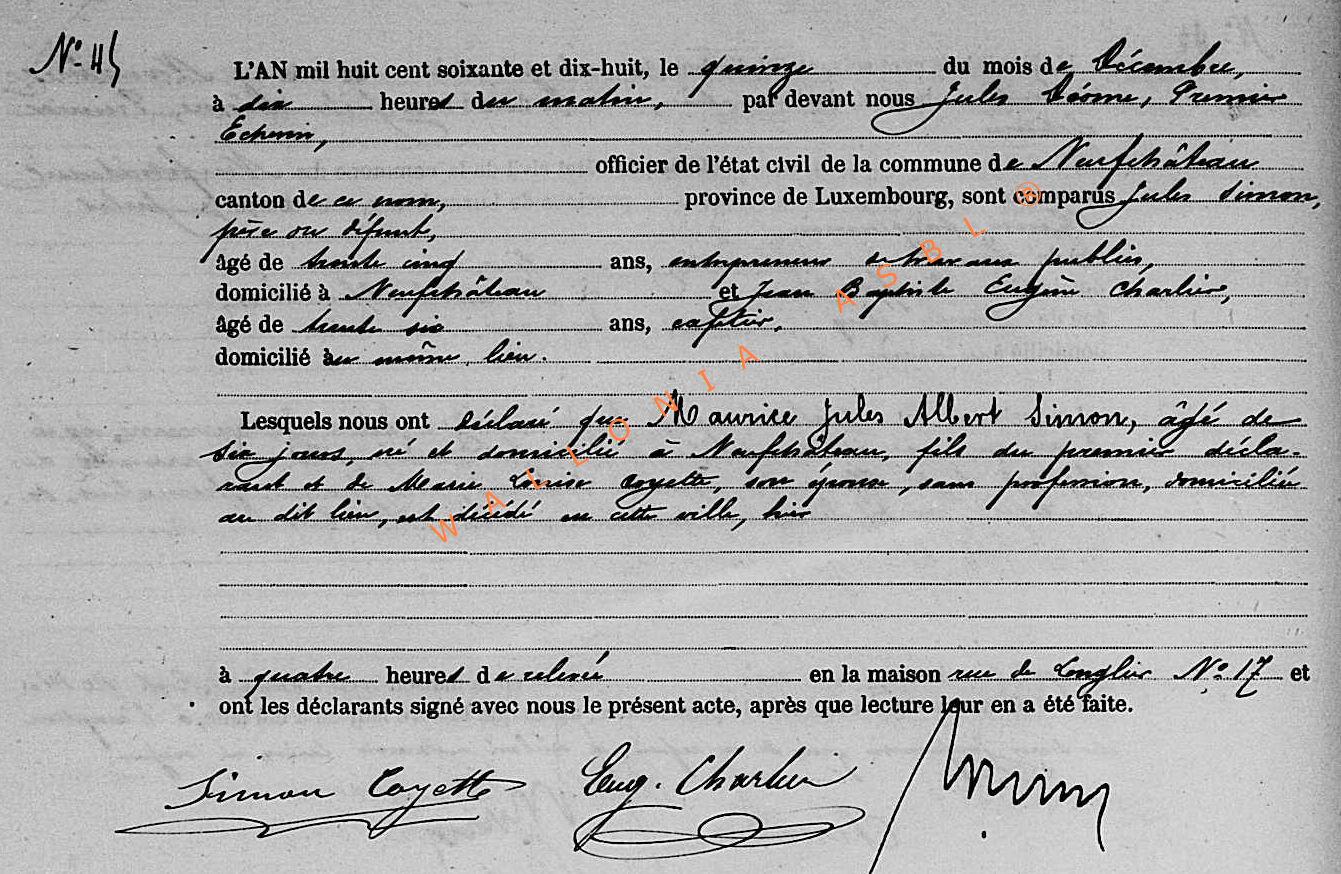 N° 45
L'AN mil huit cent soixante et dix-huit, le quinze du mois de Décembre,
à dix heures du matin, par devant nous Jules Dérome, Premier
Echevin,
officier de l'état civil de la commune de Neufchâteau
canton de ce nom, province de Luxembourg, sont comparus Jules Simon,
père du défunt,
âgé de trente cinq ans, entrepreneur de travaux publics,
domicilié à Neufchâteau et Jean Baptiste Eugène Charlier,
âgé de trente six ans, cafetier,
domicilié au même lieu.
Lesquels nous ont déclaré que Maurice Jules Albert Simon, âgé de
six jours, né et domicilié à Neufchâteau, fils du premier décla-
rant et de Marie Louise Coyette, son épouse, sans profession, domiciliée
au dit lieu, est décédé en cette ville, hier
à quatre heures de relevée en la maison rue de Longlier N° 17 et
ont les déclarants signé avec nous le présent acte, après que lecture leur en a été faite.
Simon Coyette Eug. Charlier
WALLONIA ASBL ®